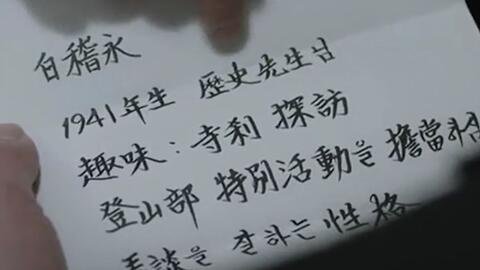 白稽永
1941年生 歷史先生님
趣味 : 寺刹 探訪
登山部 特別活動을 擔當하심
手談을 잘하는 性格